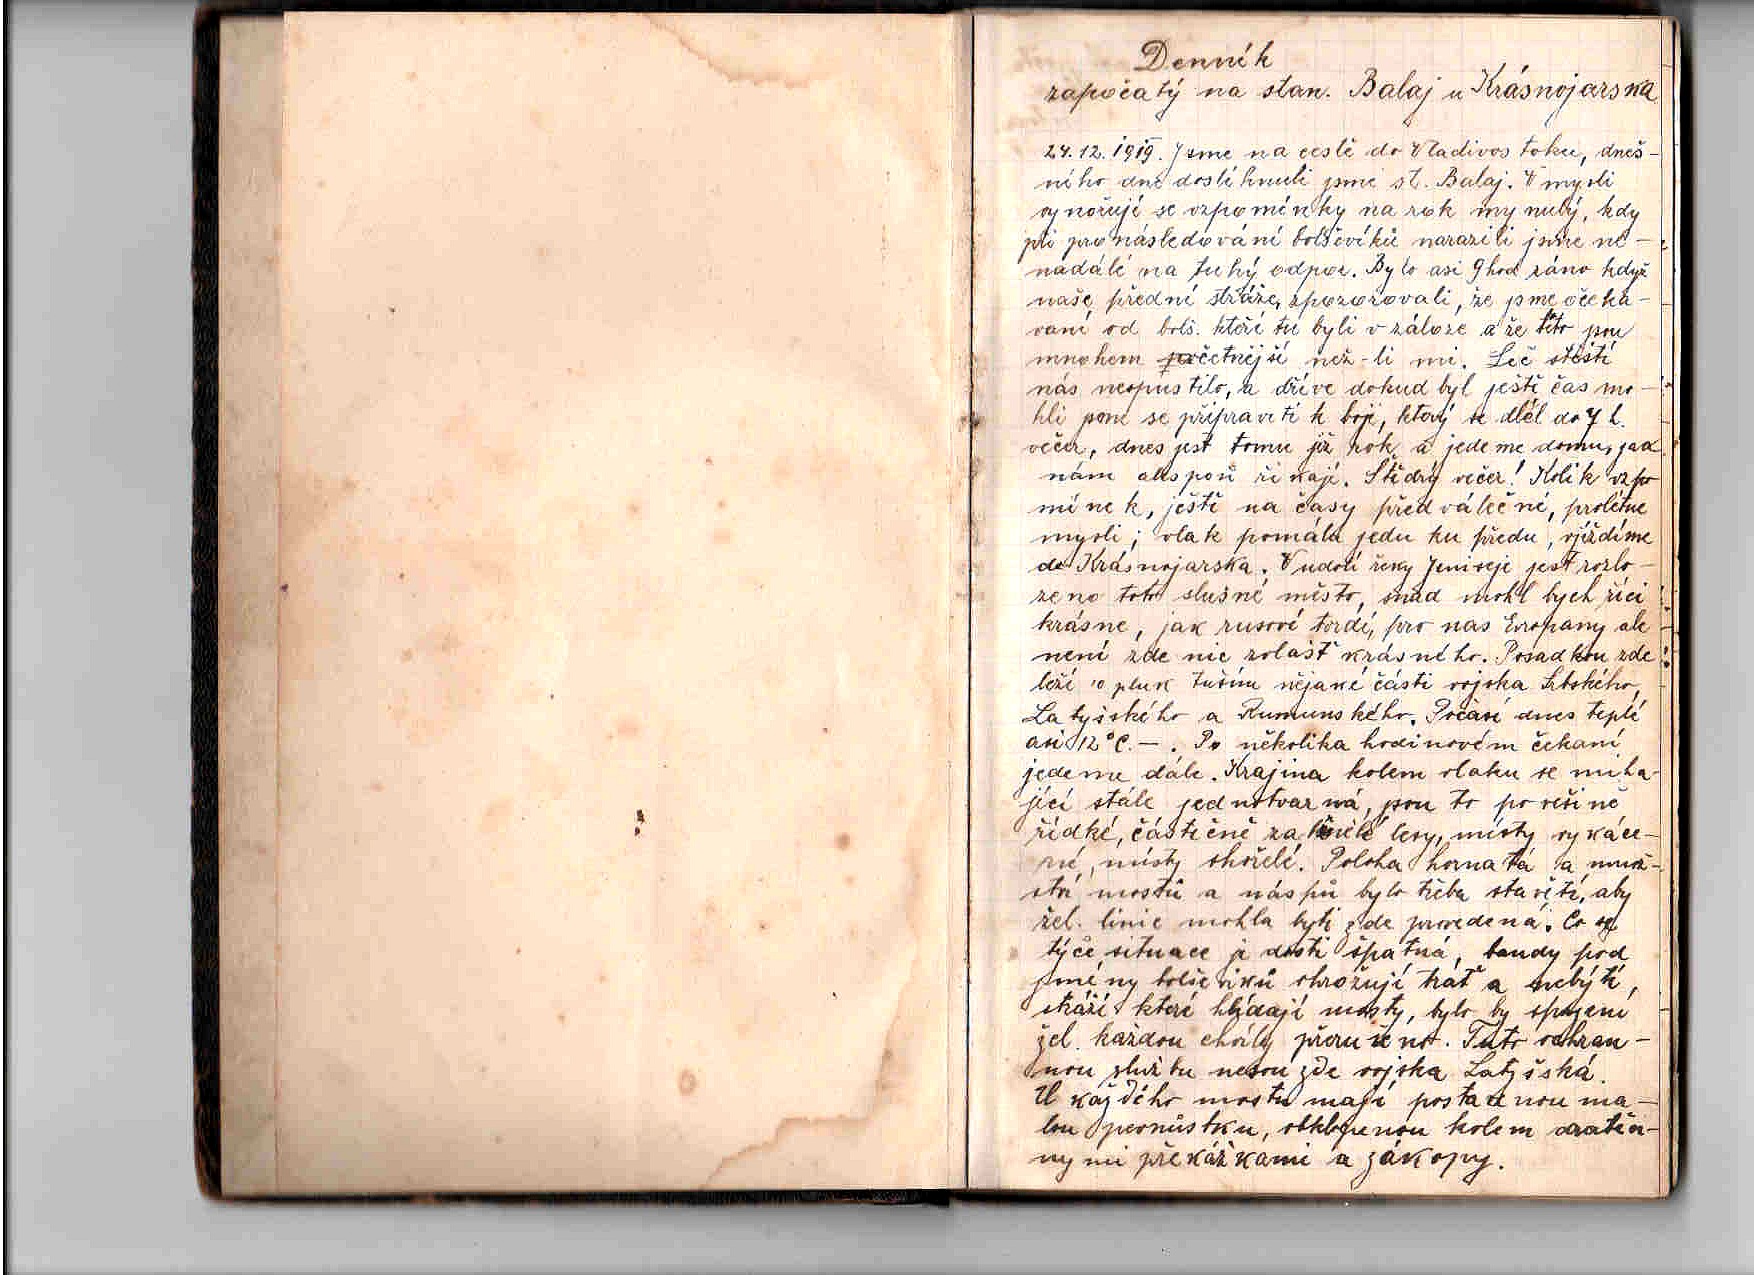 Denník
započatý na stan. Balaj u Krásnojarska
24.12.1919. Jsme na cestě do Vladivostoku, dneš-
ního dne dostihnuli jsme st. Balaj. V mysli
vynořují se vzpomínky na rok mynulý, kdy
při pronásledování bolševiků narazili jsme ne-
nadále na tuhý odpor. Bylo asi 9 hod ráno když
naše přední stráže, zpozorovali, že jsme očeká-
vaní od bolš. kteří tu byli v záloze a že tito jsou
mnohem početnější než-li mi. Leč štěstí
nás neopustilo, a dříve dokud byl ještě čas mo-
hli jsme se připraviti k boji, který se dlel do 7 h.
večer, dnes jest tomu již rok a jedeme domu, jak
nám alespoň říkají. Štědrý večer! Kolik vzpo
mínek, ještě na časy předválečné, prolétne
mysli; vlak pomálu jede ku předu, vjíždíme
do Krásnojarska. V udolí řeky Jeniseje jest rozlo-
ženo toto slušné město, snad mohl bych říci
krásne, jak rusové tvrdí, pro nas Evropany ale
není zde nic zvlášť krásného. Posadkou zde
leží 10 pluk tuším nějaké části vojska Srbského,
Latyšského a Rumunského. Počasí dnes teplé
asi 12°C. – . Po několika hodinovém čekaní
jedeme dále. Krajina kolem vlaku se míha-
jící stále jednotvarná, jsou to po věšině
řídké, částečně zalesnělé lesy, místy vykáce-
né, místy shořelé. Poloha hornatá a množ-
ství mostů a náspů bylo třeba stavěti, aby
žel. linie mohla byti zde provedená. Co se
týče situace je dosti špatná, bandy pod
jmény bolševiků ohrožují trať a nebýti,
stráží které hlídají mosty, bylo by spojení
žel. každou chvíly přerušeno. Tuto ochran-
nou službu nesou zde vojska Latyšská.
U každého mostu mají postavenou ma-
lou pevnůstku, obklopenou kolem dratěn-
nymi překážkami a zákopy.